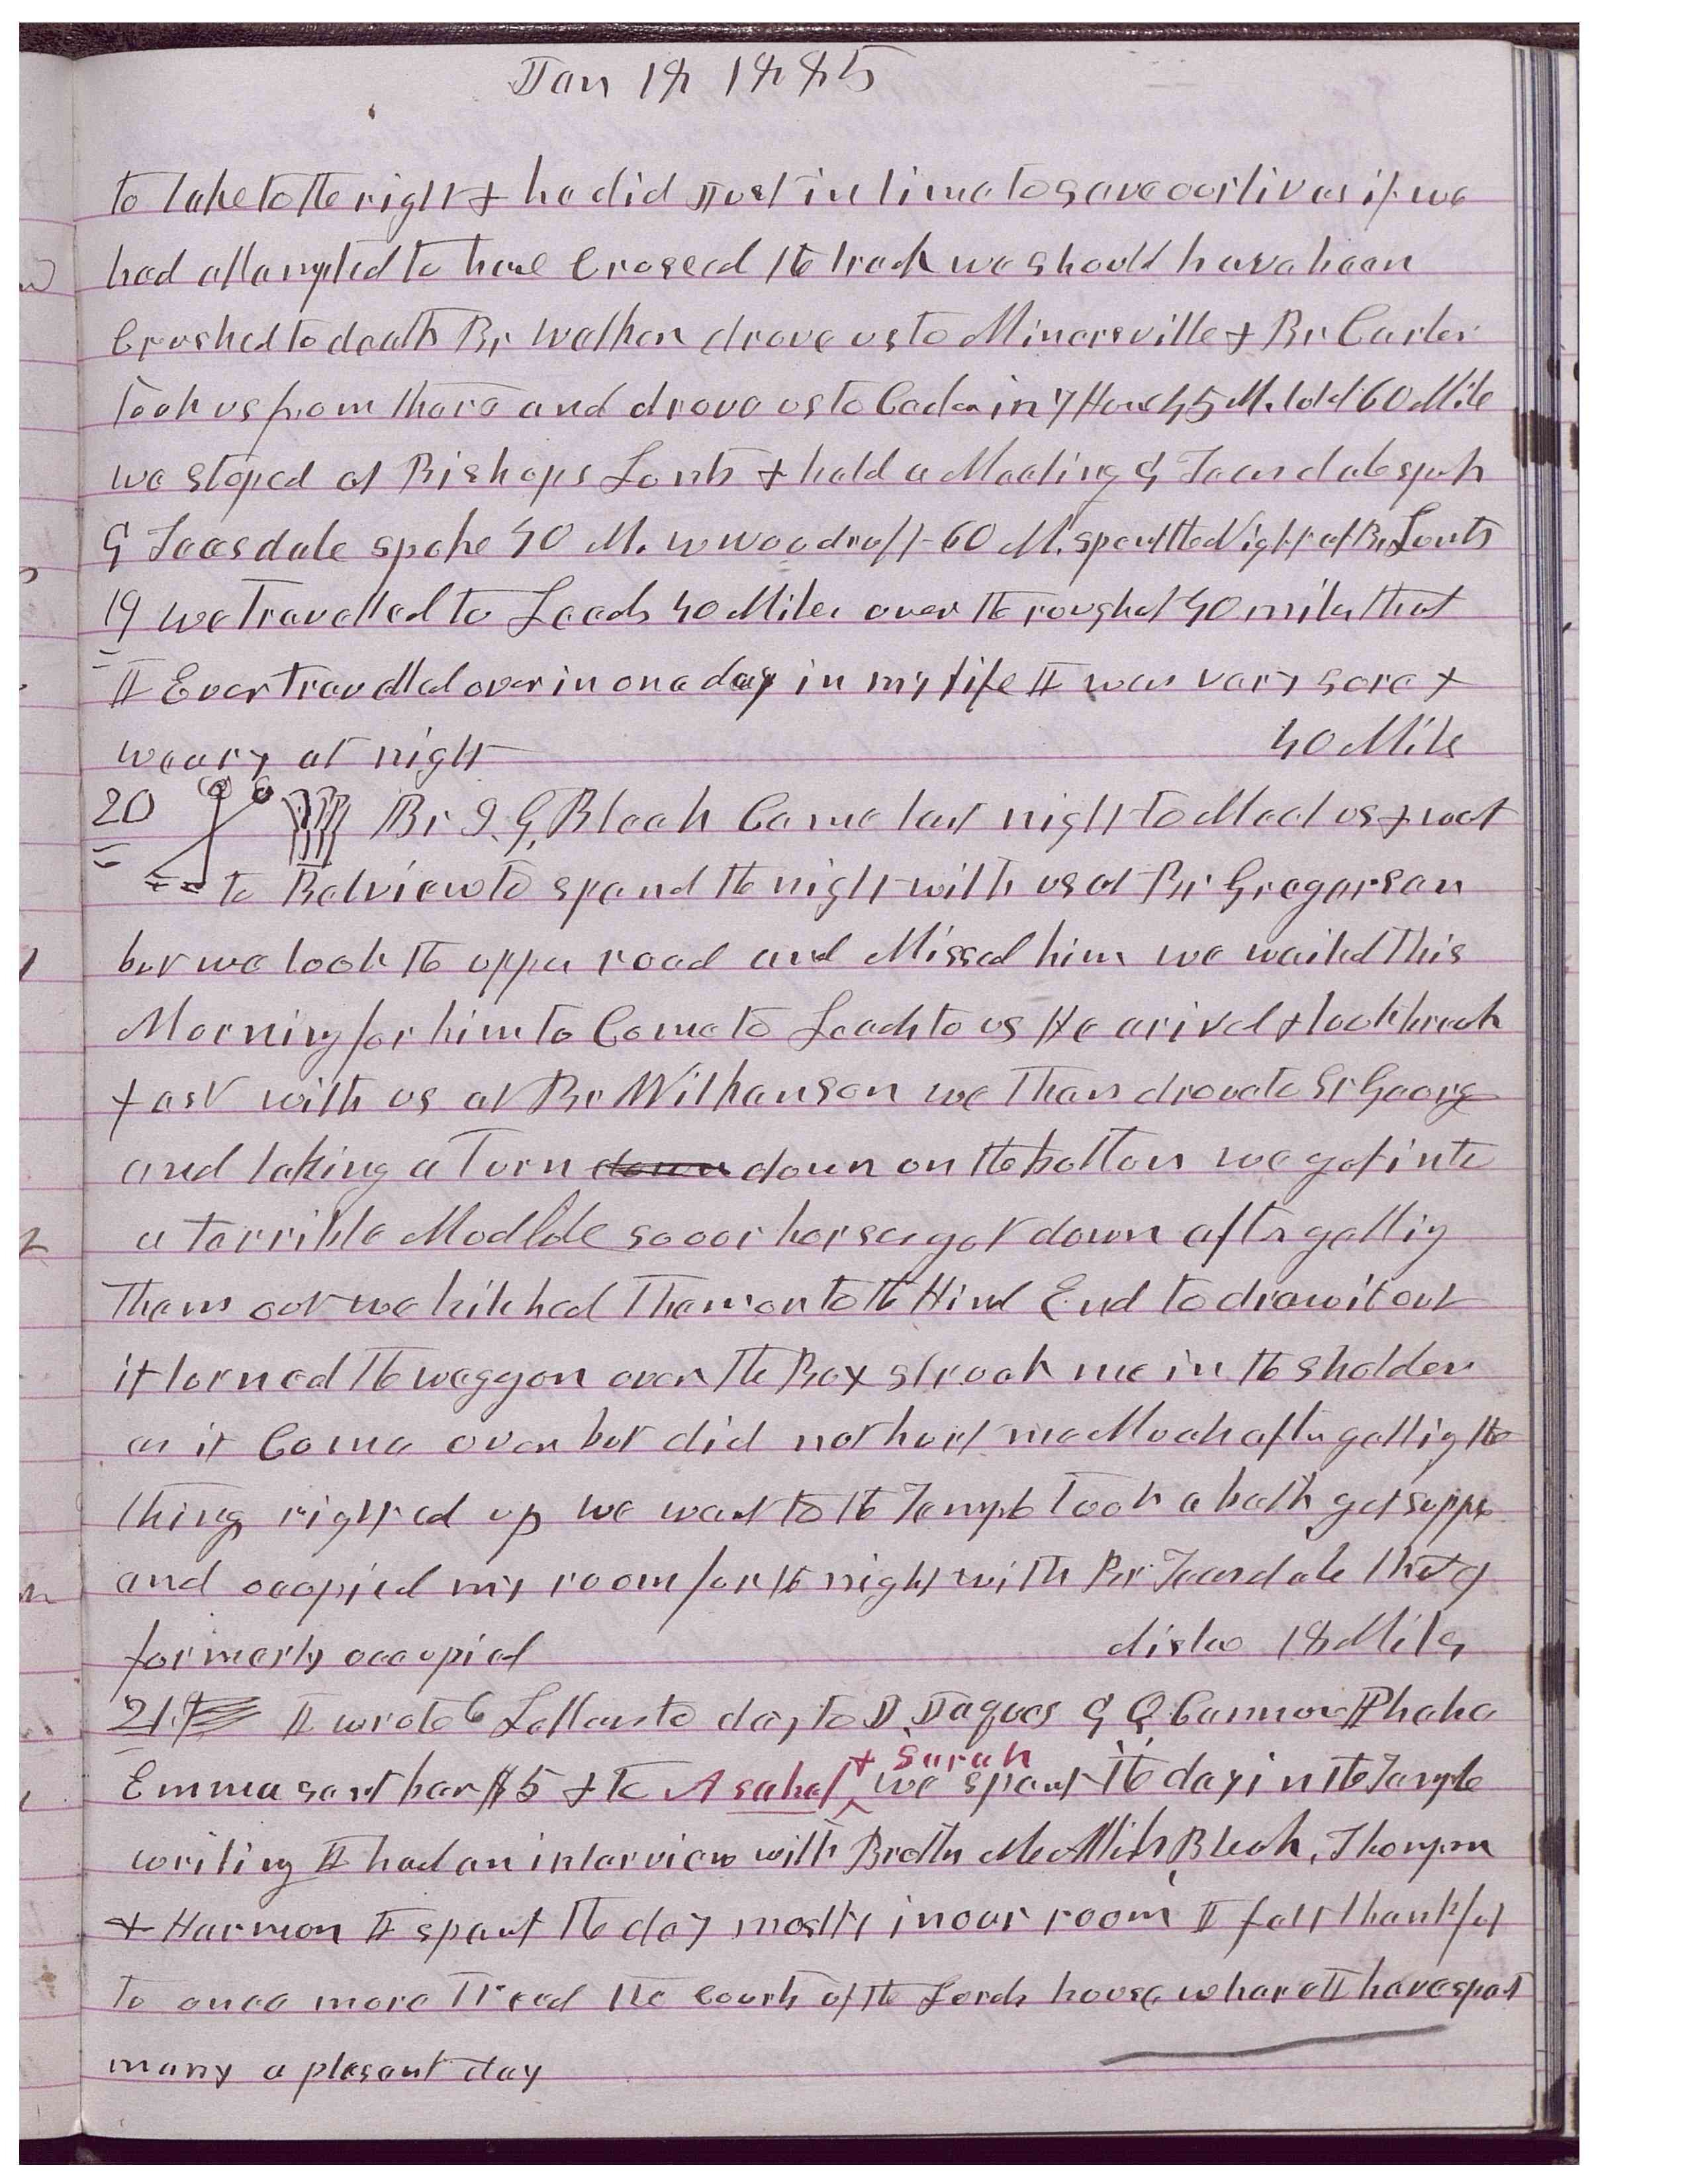 Jan 18 1885
to take to the right & he did Just in time to save our lives if we
had attempted to have Crossed the track we should have been
Crushed to death Br Walker drove us to Minersville & Br Carter
took us from there and drove us to Cedar in 7 Hours 45 M. total 60 Mile
we stoped at Bishops Lunts & held a Meeting G Teasdale spok
G Teasdale spoke 40 M. W Woodruff 60 M. spent the Night at Br Lunts
19 we Travelled to Leeds 40 Miles over the roughest 40 miles that
I Ever travelled over in one day in my life I was very sore &
weary at night 40 Mile
20 Br J. G, Bleak Came last night to Meet us & went
to Belview to spend the night with us at Br Gregerson
but we took the upper road and Missed him we waited this
Morning for him to Come to Leeds to us He arived & took break
fast with us at Br Wilkenson we then drove to St George
and taking a Turn down down on the bottom we got into
a terrible Mud hole so our horses got down after gettig
them out we hitched them on to the Hind End to draw it out
it turned the waggon over the Box struck me in the sholder
as it Came over but did not hurt me Much after gettig the
thing righted up we went to the Temple took a bath got supper
and occupied my room for the night with Br Teasdale that I
formerly occupied distan 18 Miles
21. I wrote 6 Letters to day to J. Jaques G Q Cannon Phebe
Emma sent her $5 & to Asahel & Sarah we spent the day in the Temple
writing I had an interview with Brothr McAllister, Bleak, Thompson
& Harmon I spent the day mostly in our room I felt thankful
to once more Tread the courts of the Lords house, where I have spent
many a plesant day